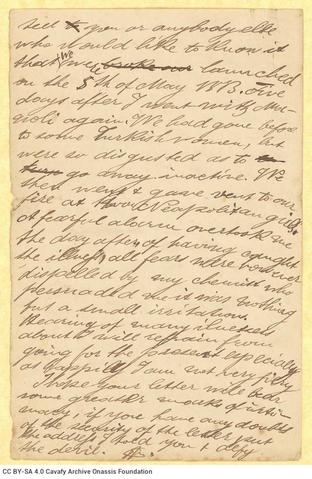 sed to you or anybody else
who would like to know it
that we were launched
on the 5th of May NB. Five
days after, I went with
again. We had gone before
to some Turkish women, but
were so disgusted as to
go away inactive. We
then went & gave vent to our
fire at two Neapolitan girls.
A fearful alarm overtook me
the day after, of having caught
the illness, all fears were however
dispelled by my chemist who
persuaded me it was nothing
but a small irritation.
Hearing of many illnesses
about I will refrain from
going for the present especially
as happily I am not very
I hope your letter will bear
some greater marks of inti-
macy, if you have any doubts
of the security of the letter put
the address I told you & defy
the devil.
CC BY-SA 4.0 Cavafy Archive Onassis Foundation